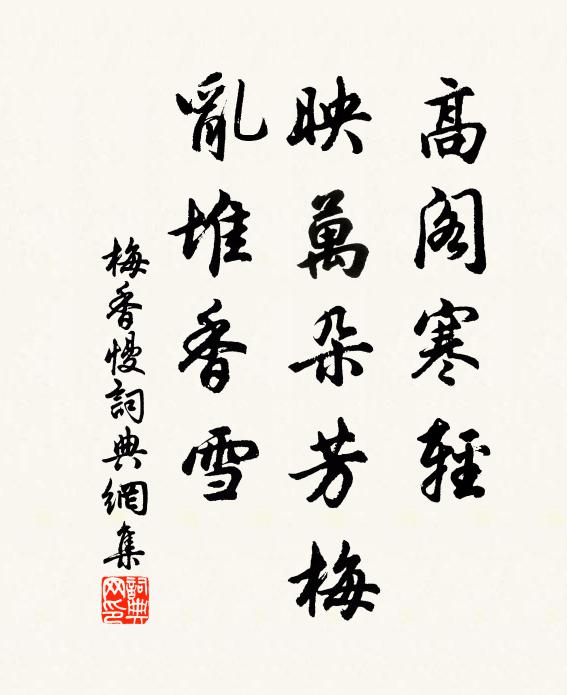 高閣寒輕
映萬朵芳梅
亂堆香雪
梅香慢詞典網集
詞典网印